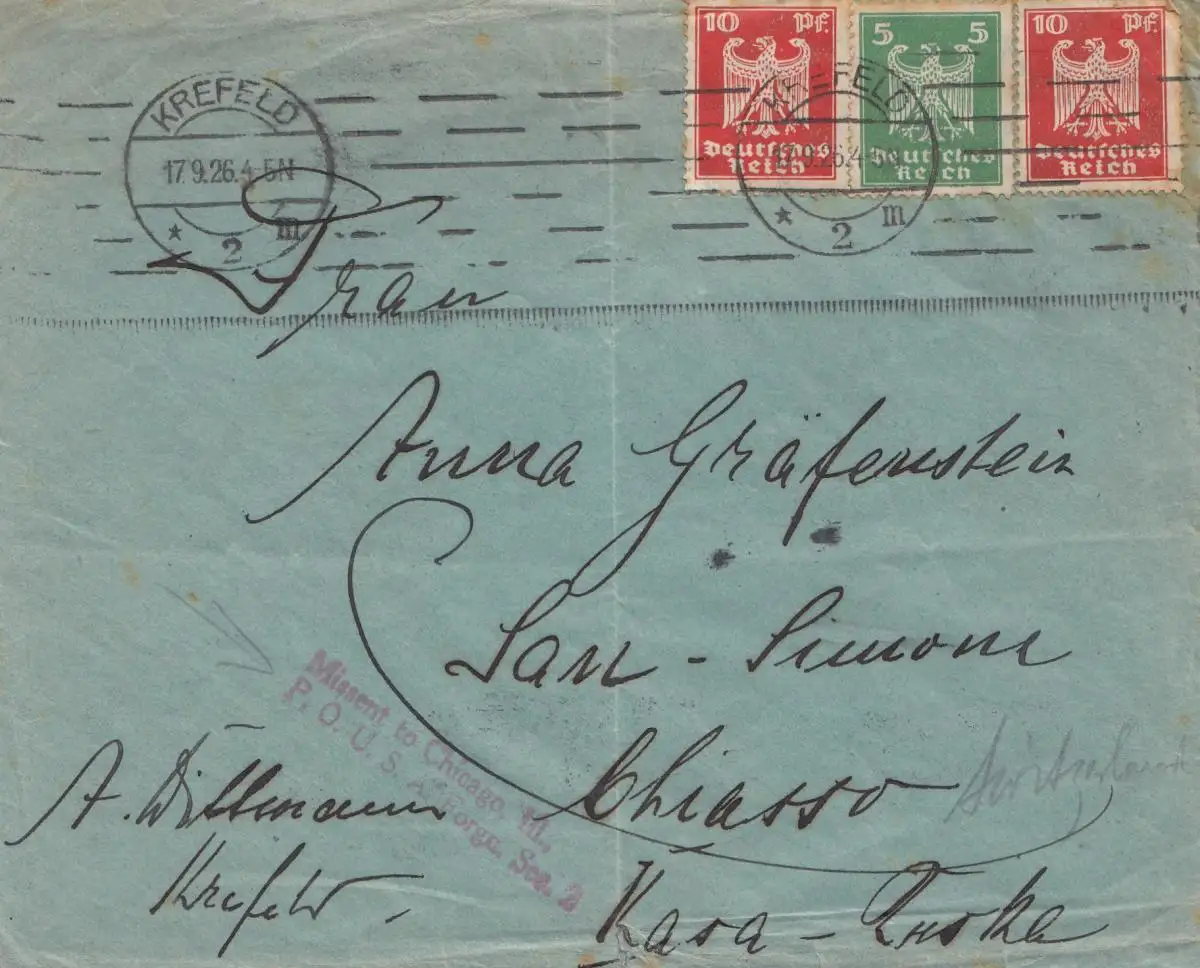 10 Pf. 5 5 10 Pf.
Deutsches Reich Deutsches Reich Deutsches Reich
KREFELD
17.9.26.4-5N
* 2 m
KREFELD
17.9.26.4-5N
* 2 m
Frau
Anna Gräfenstein
San-Simone
Chiasso
Switzerland
Kasa-
Missent to Chicago, Ill.,
P. O. U. S. A. Forgn. Sec. 2
A. Dittmann
Krefeld